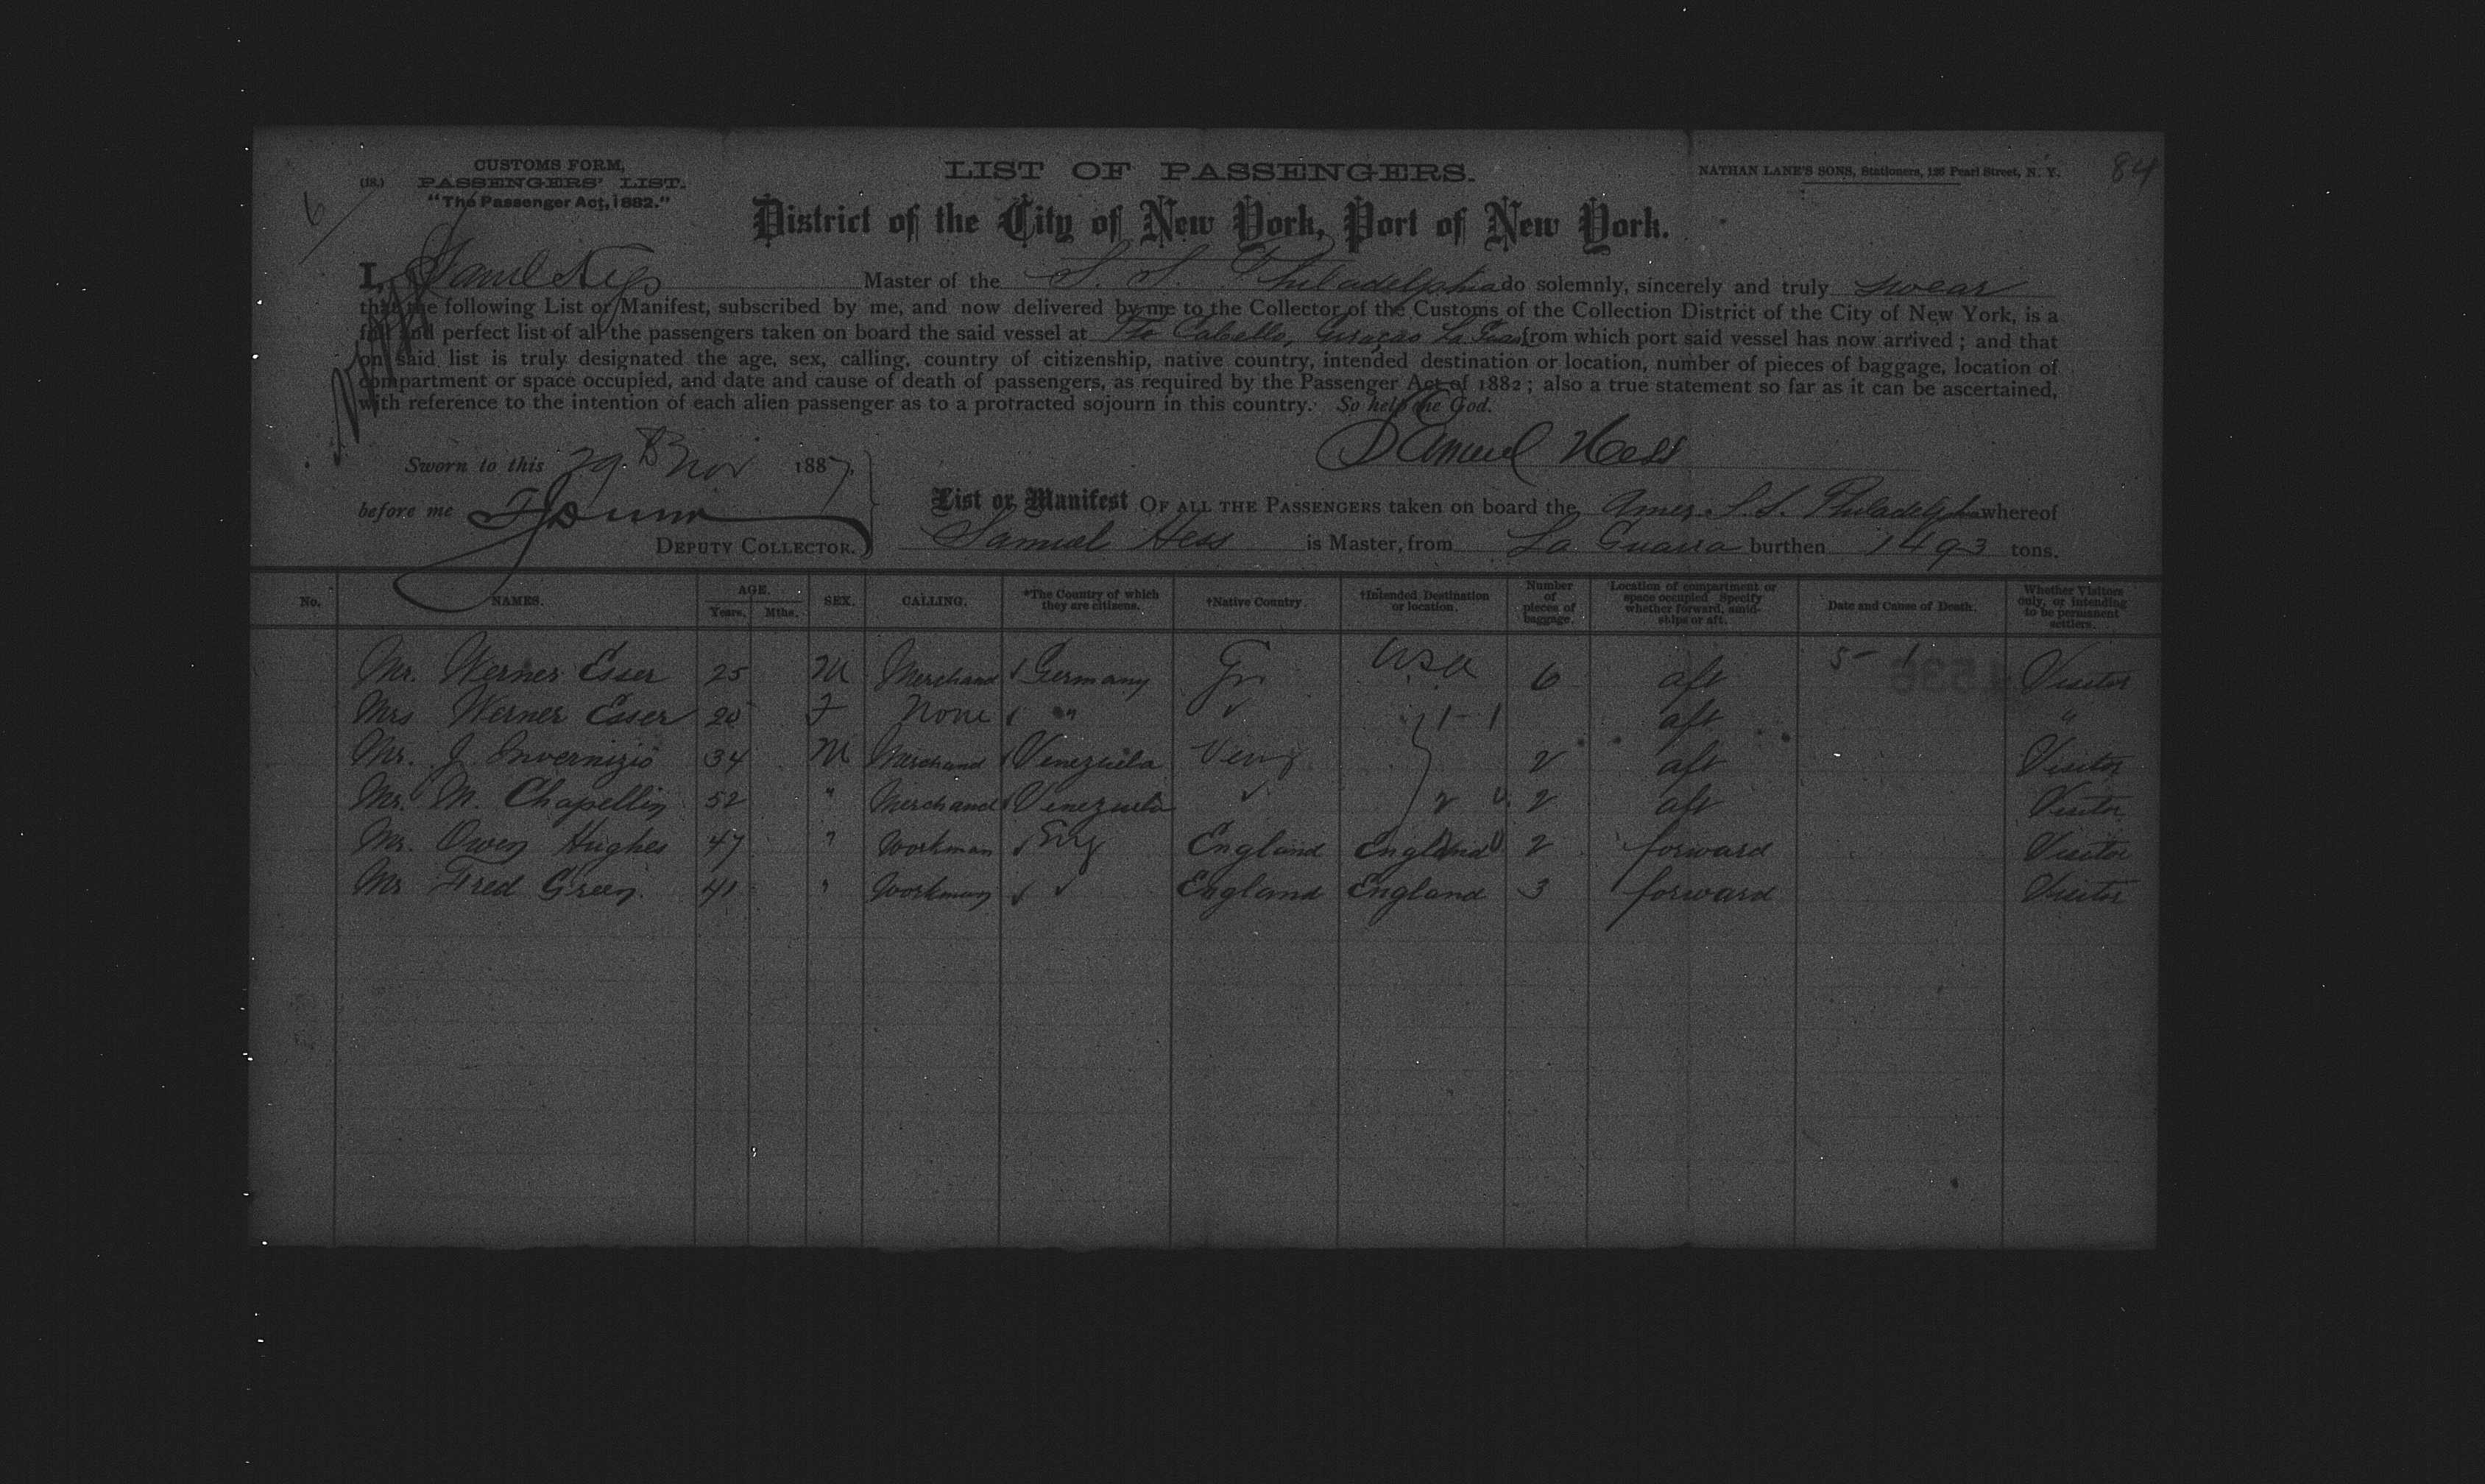 84
6
(18.)
CUSTOMS FORM,
PASSENGERS' LIST.
"The Passenger Act, 1882."
LIST OF PASSENGERS.
NATHAN LANE'S SONS, Stationers, 126 Pearl Street, N. Y.
District of the City of New York, Port of New York.
I, Saml Hess Master of the S. S. Philadelphia do solemnly, sincerely and truly swear
that the following List or Manifest, subscribed by me, and now delivered by me to the Collector of the Customs of the Collection District of the City of New York, is a
full and perfect list of all the passengers taken on board the said vessel at Pto Cabello, Curaçao La Guaira from which port said vessel has now arrived; and that
on said list is truly designated the age, sex, calling, country of citizenship, native country, intended destination or location, number of pieces of baggage, location of
compartment or space occupied, and date and cause of death of passengers, as required by the Passenger Act of 1882; also a true statement so far as it can be ascertained,
with reference to the intention of each alien passenger as to a protracted sojourn in this country. So help me God.
Samuel Hess
Sworn to this 29th Nov 1887,
before me
DEPUTY COLLECTOR.
List or Manifest OF ALL THE PASSENGERS taken on board the Amer. S.S. Philadelphia whereof
Samuel Hess is Master, from La Guaira burthen 1493 tons.
No. NAMES. AGE. Years. Mths. SEX. CALLING. *The Country of which they are citizens. †Native Country. †Intended Destination or location. Number of pieces of baggage. Location of compartment or space occupied. Specify whether forward, amidships or aft. Date and Cause of Death. Whether Visitors only, or intending to be permanent settlers.
Mr. Werner Esser 25 M Merchand Germany Gr. USA 6 aft 5 - 1 Visitor
Mrs Werner Esser 20 F None " ✓ 1 - 1 aft "
Mr. J. Invernizio 34 M Merchand Venezuela Venz 2 aft Visitor
Mr. M. Chapellin 52 " Merchand Venezuela ✓ 2 2 aft Visitor
Mr. Owen Hughes 47 " Workman Eng England England 2 forward Visitor
Mr Fred Green. 41 " Workman ✓ England England 3 forward Visitor